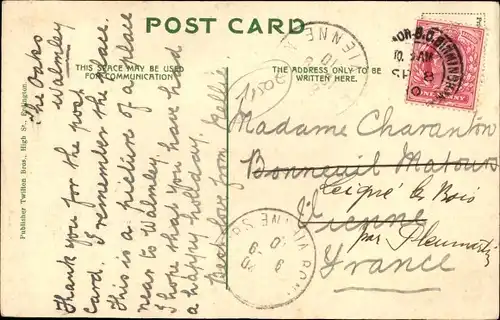 POST CARD
THIS SPACE MAY BE USED
FOR COMMUNICATION
THE ADDRESS ONLY TO BE
WRITTEN HERE.
The Oaks
Walmley
Thank you for the post
card. I remember the place.
This is a picture of a place
near to Walmley.
I hope that you have had
a happy holiday.
Best love from Nellie
Madame Charanton
Bonneuil Matours
Leigné les Bois
Vienne
par Pleumartin
France
ONE PENNY
Publisher Twilton Bros., High St., Erdington.